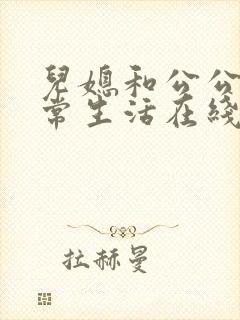 兒媳和公公
常生活在綫
拉赫曼